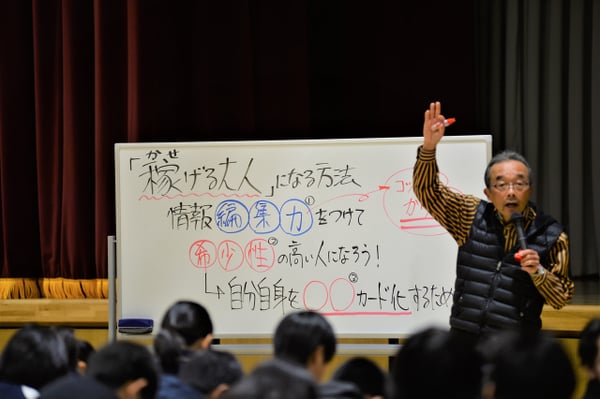 「稼(かせ)げる大人」になる方法
情報編集力①をつけて
希少性②の高い人になろう!
↳自分自身を〇〇②カード化するため
コッ
か